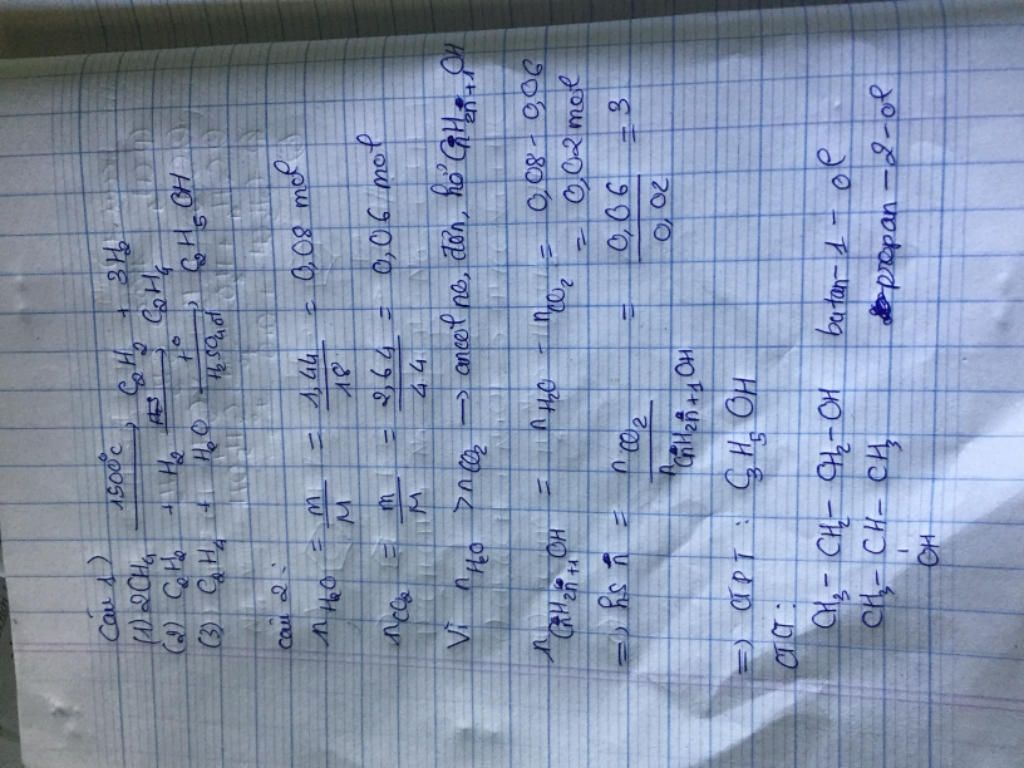 Câu 1)
(1) 2CH4 1500°C → C2H2 + 3H2
(2) C2H2 + H2 → C2H4
(3) C2H4 + H2O t° H2SO4đ → C2H5OH
Câu 2:
nH2O = m/M = 1,44/18 = 0,08 mol
nCO2 = m/M = 2,64/44 = 0,06 mol
Vì nH2O > nCO2 → ancol no, đơn, hở CnH2n+1OH
nCnH2n+1OH = nH2O - nCO2 = 0,08 - 0,06
= 0,02 mol
=) hs n = nCO2/nCnH2n+1OH = 0,06/0,02 = 3
=) CTPT : C3H5OH
CTCT:
CH3 - CH2 - CH2 - OH butan - 1 - ol
CH3 - CH - CH3 propan - 2 - ol
OH